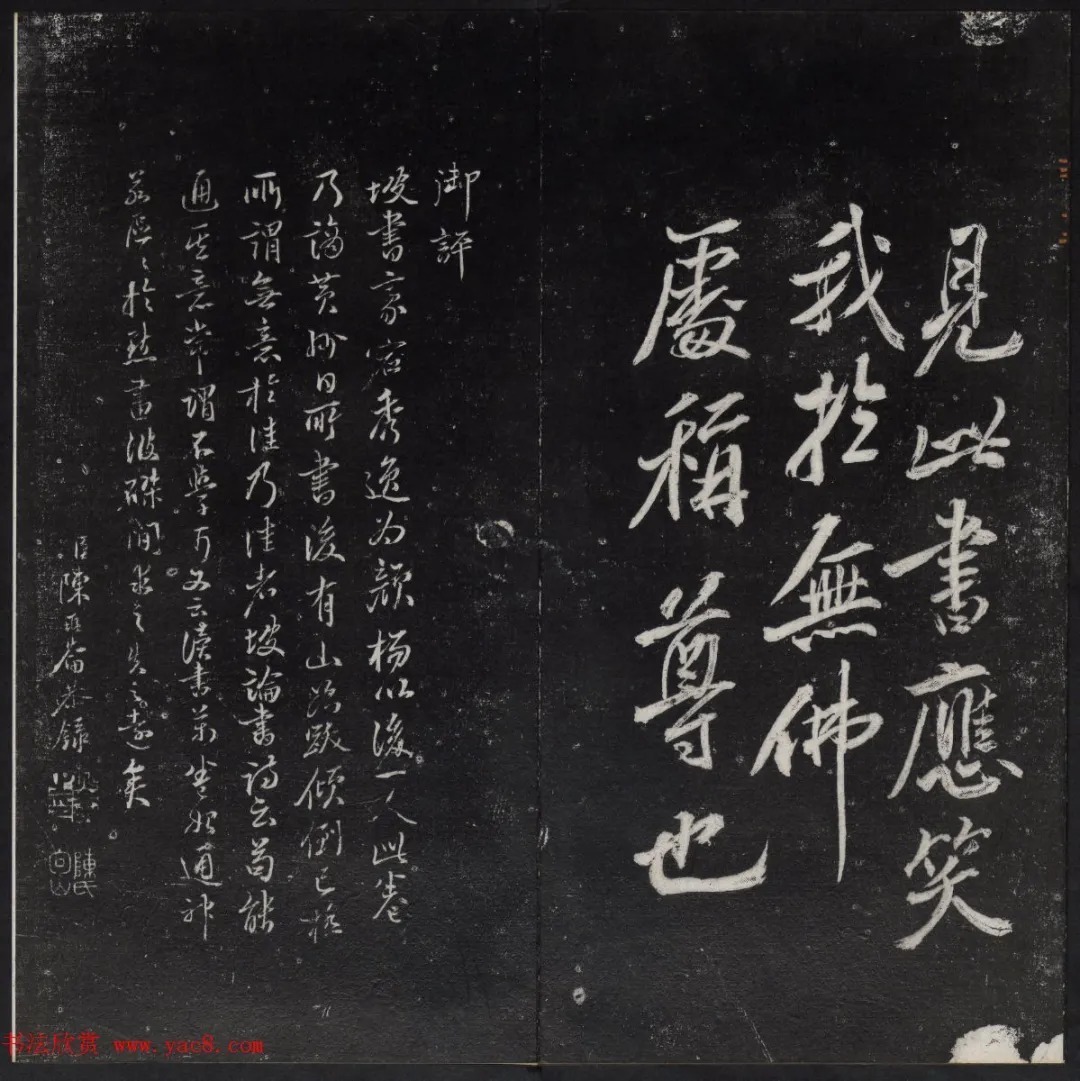 見此書應笑
我於無佛
處稱尊也
御評
坡書豪宕秀逸為顏楊以後一人此卷
乃謫黃州日所書後有山谷跋傾倒已極
所謂無意於佳乃佳者坡論書詩云苟能
通其意常謂不學可又云讀書萬卷始通神
若區〻於點畫波磔間求之失之遠矣
臣陳兆崙恭錄
陳氏句山
书法欣赏 www.yac8.com